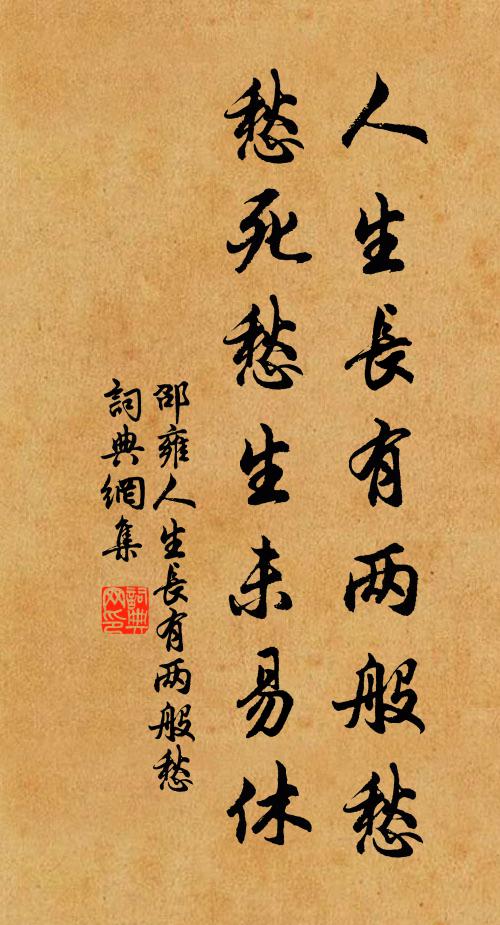 人生長有两般愁
愁死愁生未易休
邵雍人生長有两般愁
詞典網集
詞典
网印